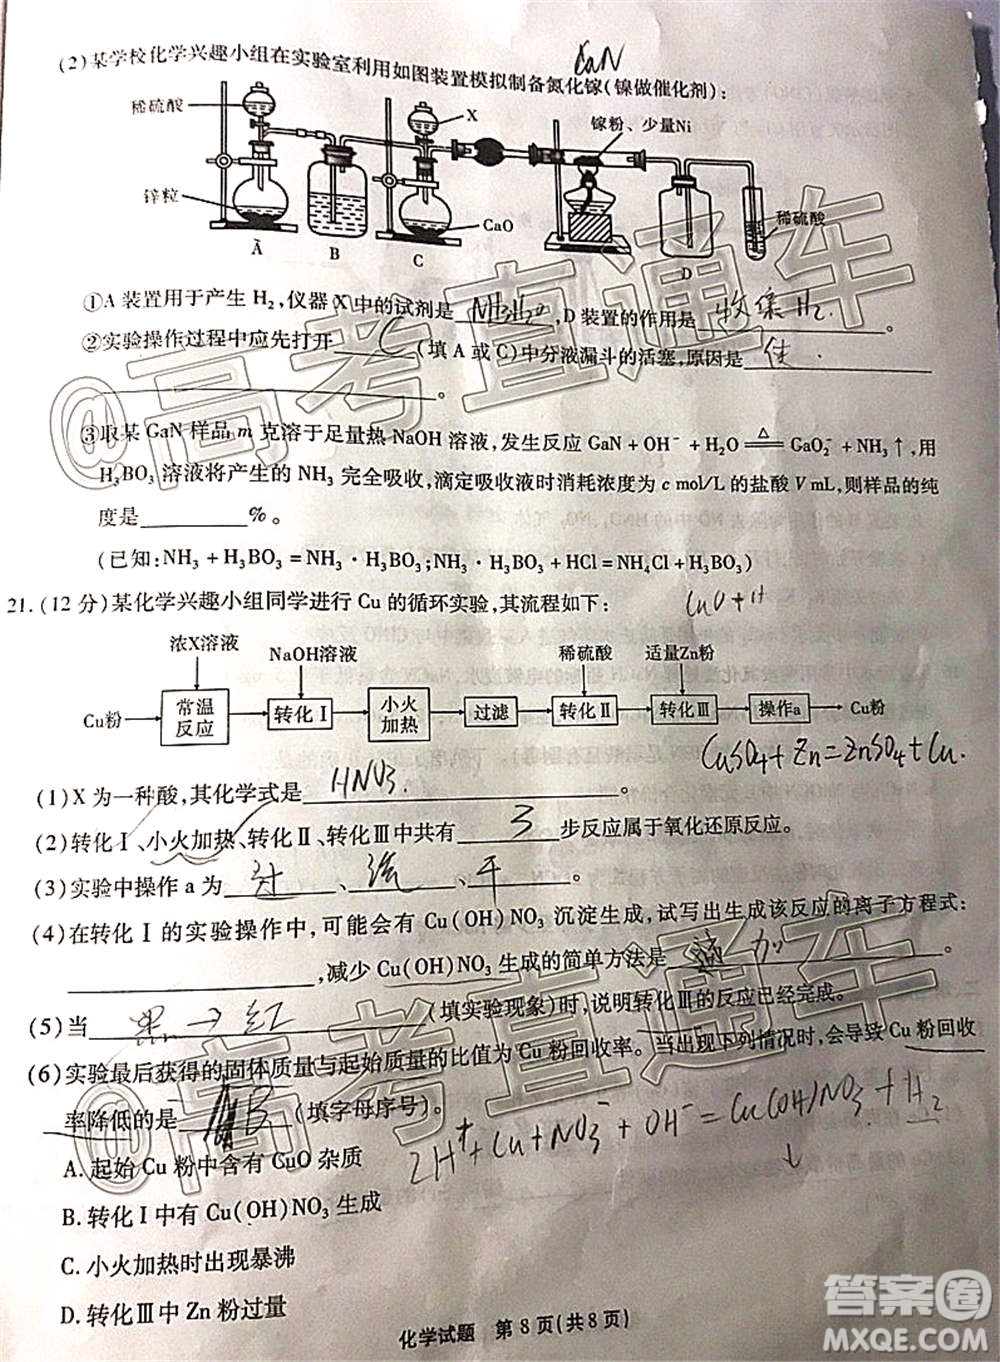 (2)某学校化学兴趣小组在实验室利用如图装置模拟制备氮化镓(镍做催化剂):
GaN
稀硫酸
X
镓粉、少量Ni
锌粒
CaO
稀硫酸
A
B
C
D
①A装置用于产生H₂,仪器X中的试剂是 NH3H2O ,D装置的作用是 收集H2. 。
②实验操作过程中应先打开 C (填A或C)中分液漏斗的活塞,原因是 使
。
③取某GaN样品m克溶于足量热NaOH溶液,发生反应GaN+OH⁻+H₂O≜GaO₂⁻+NH₃↑,用
H₃BO₃溶液将产生的NH₃完全吸收,滴定吸收液时消耗浓度为c mol/L的盐酸V mL,则样品的纯
度是________%。
(已知:NH₃+H₃BO₃=NH₃·H₃BO₃;NH₃·H₃BO₃+HCl=NH₄Cl+H₃BO₃)
21.(12分)某化学兴趣小组同学进行Cu的循环实验,其流程如下:
CuO+H
浓X溶液
NaOH溶液
稀硫酸
适量Zn粉
Cu粉
常温反应
转化Ⅰ
小火加热
过滤
转化Ⅱ
转化Ⅲ
操作a
Cu粉
CuSO4+Zn=ZnSO4+Cu.
(1)X为一种酸,其化学式是 HNO3. 。
(2)转化Ⅰ、小火加热、转化Ⅱ、转化Ⅲ中共有 3 步反应属于氧化还原反应。
(3)实验中操作a为 过 、 洗 、 干 。
(4)在转化Ⅰ的实验操作中,可能会有Cu(OH)NO₃沉淀生成,试写出生成该反应的离子方程式:
________,减少Cu(OH)NO₃生成的简单方法是 加 。
(5)当 黑→红 (填实验现象)时,说明转化Ⅲ的反应已经完成。
(6)实验最后获得的固体质量与起始质量的比值为Cu粉回收率。当出现下列情况时,会导致Cu粉回收
率降低的是 B (填字母序号)。
2H⁺+Cu+NO3⁻+OH⁻=Cu(OH)NO3+H2
↓
A.起始Cu粉中含有CuO杂质
B.转化Ⅰ中有Cu(OH)NO₃生成
C.小火加热时出现暴沸
D.转化Ⅲ中Zn粉过量
化学试题 第8页(共8页)
@高考直通车
@高考直通车
答案圈
MXQE.COM